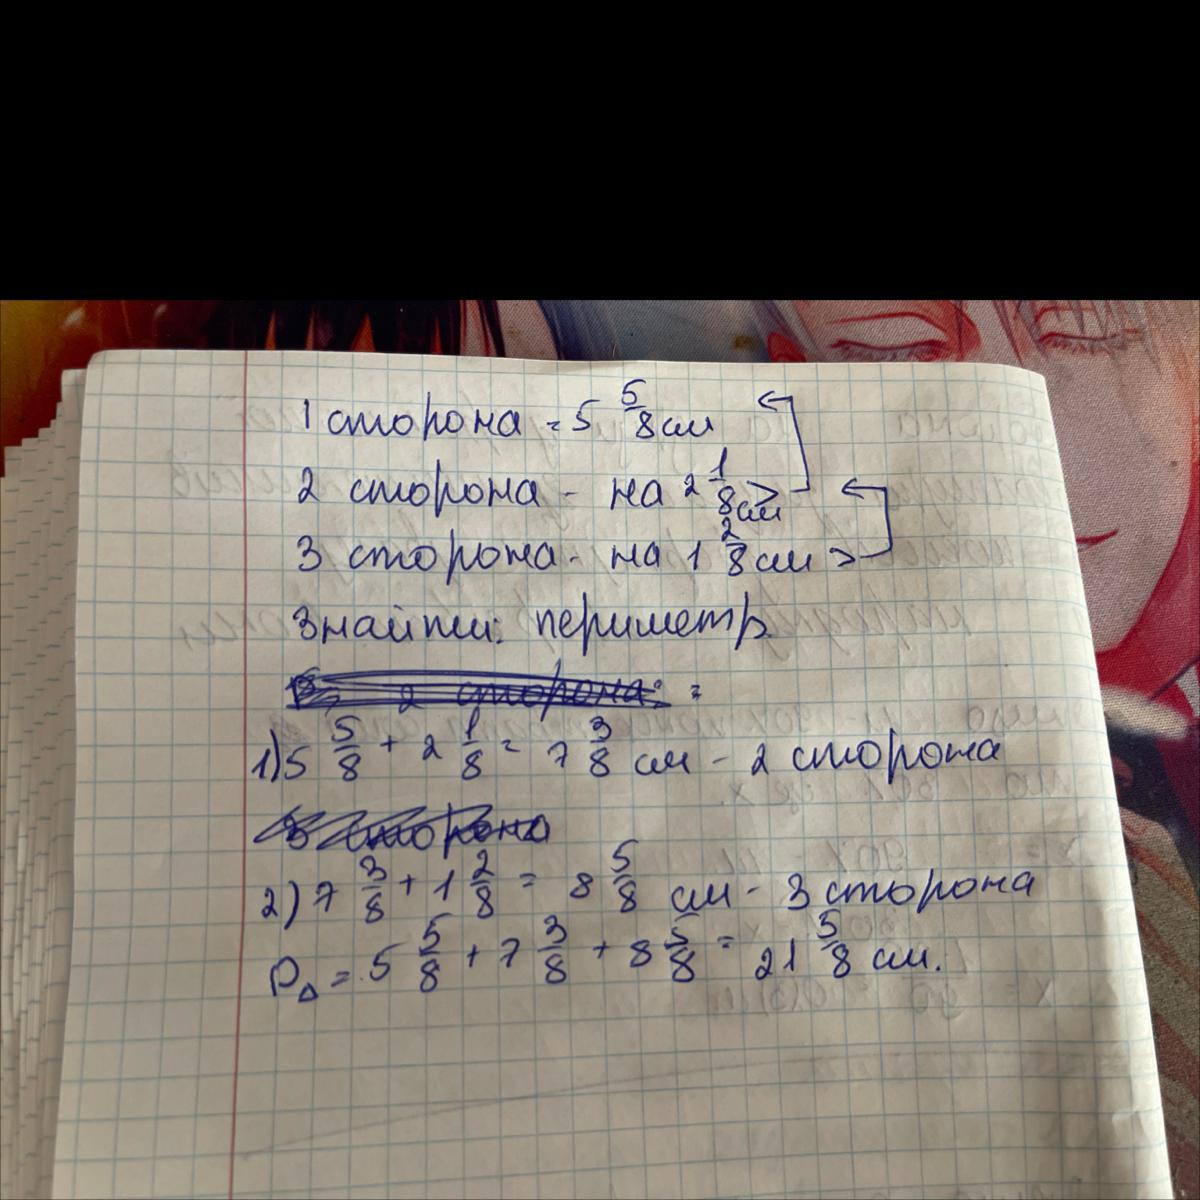 1 сторона = 5 5/8 см
2 сторона - на 2 1/8 см >
3 сторона - на 1 2/8 см >
Знайти: периметр
2 сторона: =
1) 5 5/8 + 2 1/8 = 7 3/8 см - 2 сторона
3 сторона
2) 7 3/8 + 1 2/8 = 8 5/8 см - 3 сторона
P△ = 5 5/8 + 7 3/8 + 8 5/8 = 21 5/8 см.